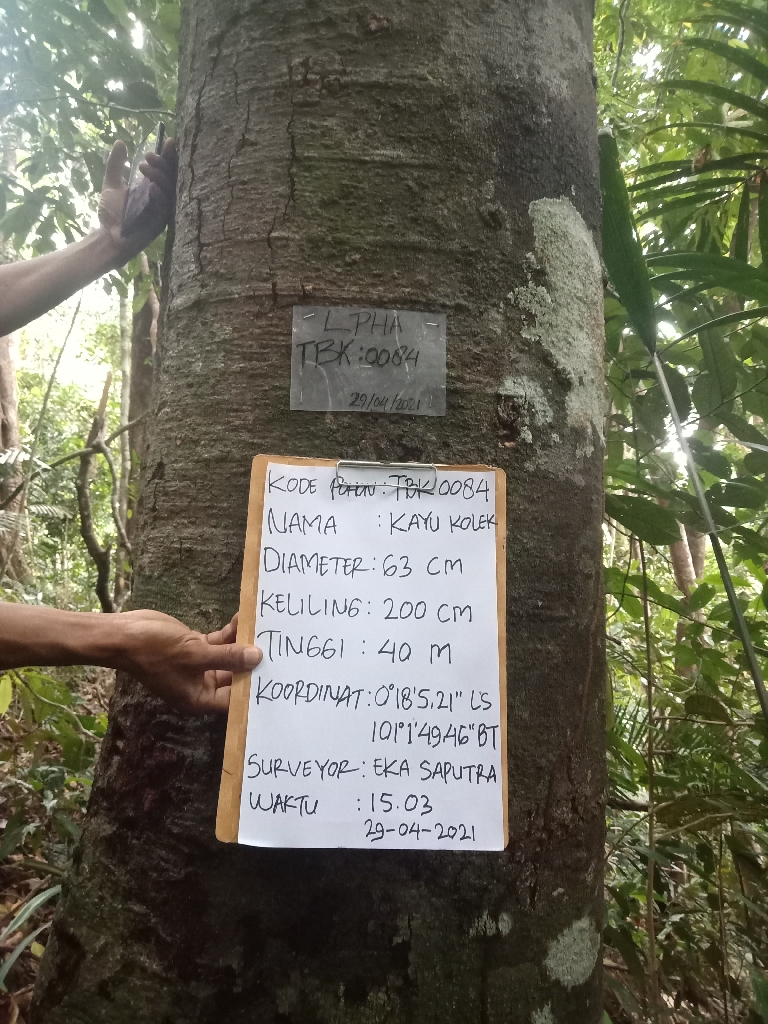 LPHA
TBK:0084
29/04/2021
KODE POHON: TBK 0084
NAMA : KAYU KOLEK
DIAMETER: 63 CM
KELILING: 200 CM
TINGGI : 40 M
KOORDINAT: 0°18'5,21" LS
101°1'49,46" BT
SURVEYOR: EKA SAPUTRA
WAKTU : 15.03
29-04-2021